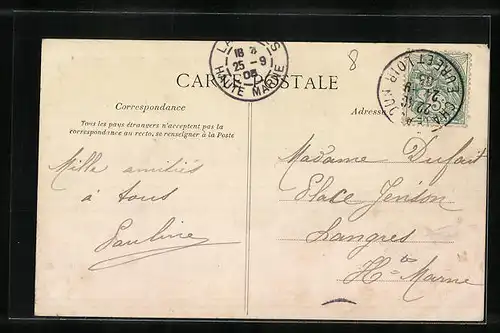 LANGRES
18
25 - 9
05
HAUTE MARNE
8
EURE ET LOIR
CARTE POSTALE
Correspondance
Adresse
Tous les pays étrangers n'acceptent pas la
correspondance au recto, se renseigner à la Poste
Mille amitiés
à tous
Pauline
Madame Dufait
Place Jenson
Langres
Hte Marne